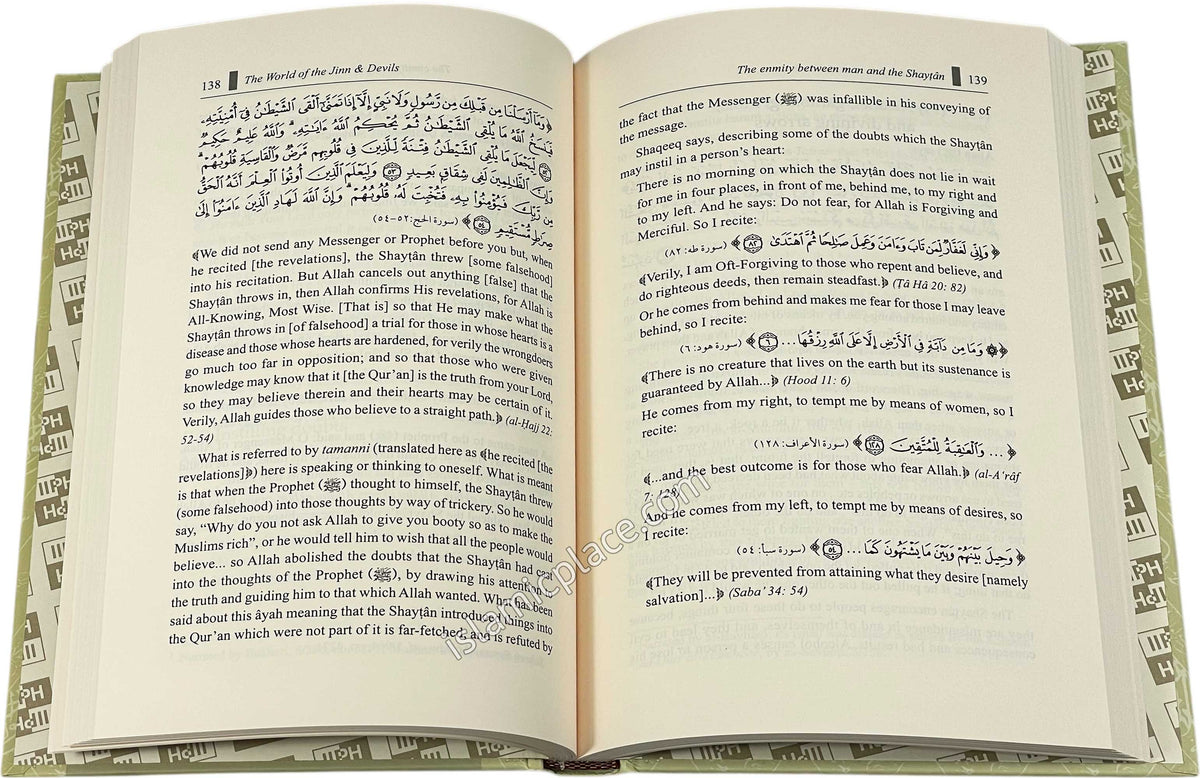 138 The World of the Jinn & Devils
﴿ وَمَآ أَرْسَلْنَا مِن قَبْلِكَ مِن رَّسُولٍ وَلَا نَبِيٍّ إِلَّآ إِذَا تَمَنَّىٰٓ أَلْقَى ٱلشَّيْطَٰنُ فِىٓ أُمْنِيَّتِهِۦ
فَيَنسَخُ ٱللَّهُ مَا يُلْقِى ٱلشَّيْطَٰنُ ثُمَّ يُحْكِمُ ٱللَّهُ ءَايَٰتِهِۦ ۗ وَٱللَّهُ عَلِيمٌ حَكِيمٌ
۝٥٢ لِّيَجْعَلَ مَا يُلْقِى ٱلشَّيْطَٰنُ فِتْنَةً لِّلَّذِينَ فِى قُلُوبِهِم مَّرَضٌ وَٱلْقَاسِيَةِ قُلُوبُهُمْ ۗ
وَإِنَّ ٱلظَّٰلِمِينَ لَفِى شِقَاقٍۭ بَعِيدٍ ۝٥٣ وَلِيَعْلَمَ ٱلَّذِينَ أُوتُوا۟ ٱلْعِلْمَ أَنَّهُ ٱلْحَقُّ
مِن رَّبِّكَ فَيُؤْمِنُوا۟ بِهِۦ فَتُخْبِتَ لَهُۥ قُلُوبُهُمْ ۗ وَإِنَّ ٱللَّهَ لَهَادِ ٱلَّذِينَ ءَامَنُوٓا۟ إِلَىٰ
صِرَٰطٍ مُّسْتَقِيمٍ ۝٥٤ ﴾ (سورة الحج: ٥٢-٥٤)
﴿We did not send any Messenger or Prophet before you but, when
he recited [the revelations], the Shayṭân threw [some falsehood]
into his recitation. But Allah cancels out anything [false] that the
Shayṭân throws in, then Allah confirms His revelations, for Allah is
All-Knowing, Most Wise. [That is] so that He may make what the
Shayṭân throws in [of falsehood] a trial for those in whose hearts is a
disease and those whose hearts are hardened, for verily the wrongdoers
go much too far in opposition; and so that those who were given
knowledge may know that it [the Qur'an] is the truth from your Lord,
so they may believe therein and their hearts may be certain of it.
Verily, Allah guides those who believe to a straight path.﴾ (al-Ḥajj 22:
52-54)
What is referred to by tamanni (translated here as ﴿he recited [the
revelations]﴾) here is speaking or thinking to oneself. What is meant
is that when the Prophet (ﷺ) thought to himself, the Shayṭân threw
(some falsehood) into those thoughts by way of trickery. So he would
say, “Why do you not ask Allah to give you booty so as to make the
Muslims rich”, or he would tell him to wish that all the people would
believe... so Allah abolished the doubts that the Shayṭân had cast
into the thoughts of the Prophet (ﷺ), by drawing his attention to
the truth and guiding him to that which Allah wanted. What has been
said about this âyah meaning that the Shayṭân introduced things into
the Qur'an which were not part of it is far-fetched, and is refuted by
The enmity between man and the Shayṭân 139
the fact that the Messenger (ﷺ) was infallible in his conveying of
the message.
Shaqeeq says, describing some of the doubts which the Shayṭân
may instil in a person's heart:
There is no morning on which the Shayṭân does not lie in wait
for me in four places, in front of me, behind me, to my right and
to my left. And he says: Do not fear, for Allah is Forgiving and
Merciful. So I recite:
﴿ وَإِنِّى لَغَفَّارٌ لِّمَن تَابَ وَءَامَنَ وَعَمِلَ صَٰلِحًا ثُمَّ ٱهْتَدَىٰ ۝٨٢ ﴾ (سورة طه: ٨٢)
﴿Verily, I am Oft-Forgiving to those who repent and believe, and
do righteous deeds, then remain steadfast.﴾ (Tâ Hâ 20: 82)
Or he comes from behind and makes me fear for those I may leave
behind, so I recite:
﴿ ۞ وَمَا مِن دَآبَّةٍ فِى ٱلْأَرْضِ إِلَّا عَلَى ٱللَّهِ رِزْقُهَا ... ۝٦ ﴾ (سورة هود: ٦)
﴿There is no creature that lives on the earth but its sustenance is
guaranteed by Allah...﴾ (Hood 11: 6)
He comes from my right, to tempt me by means of women, so I
recite:
﴿ ... وَٱلْعَٰقِبَةُ لِلْمُتَّقِينَ ۝١٢٨ ﴾ (سورة الأعراف: ١٢٨)
﴿...and the best outcome is for those who fear Allah.﴾ (al-A'râf
7: 128)
And he comes from my left, to tempt me by means of desires, so
I recite:
﴿ وَحِيلَ بَيْنَهُمْ وَبَيْنَ مَا يَشْتَهُونَ كَمَا ... ۝٥٤ ﴾ (سورة سبأ: ٥٤)
﴿They will be prevented from attaining what they desire [namely
salvation]...﴾ (Saba' 34: 54)
islamicplace.com